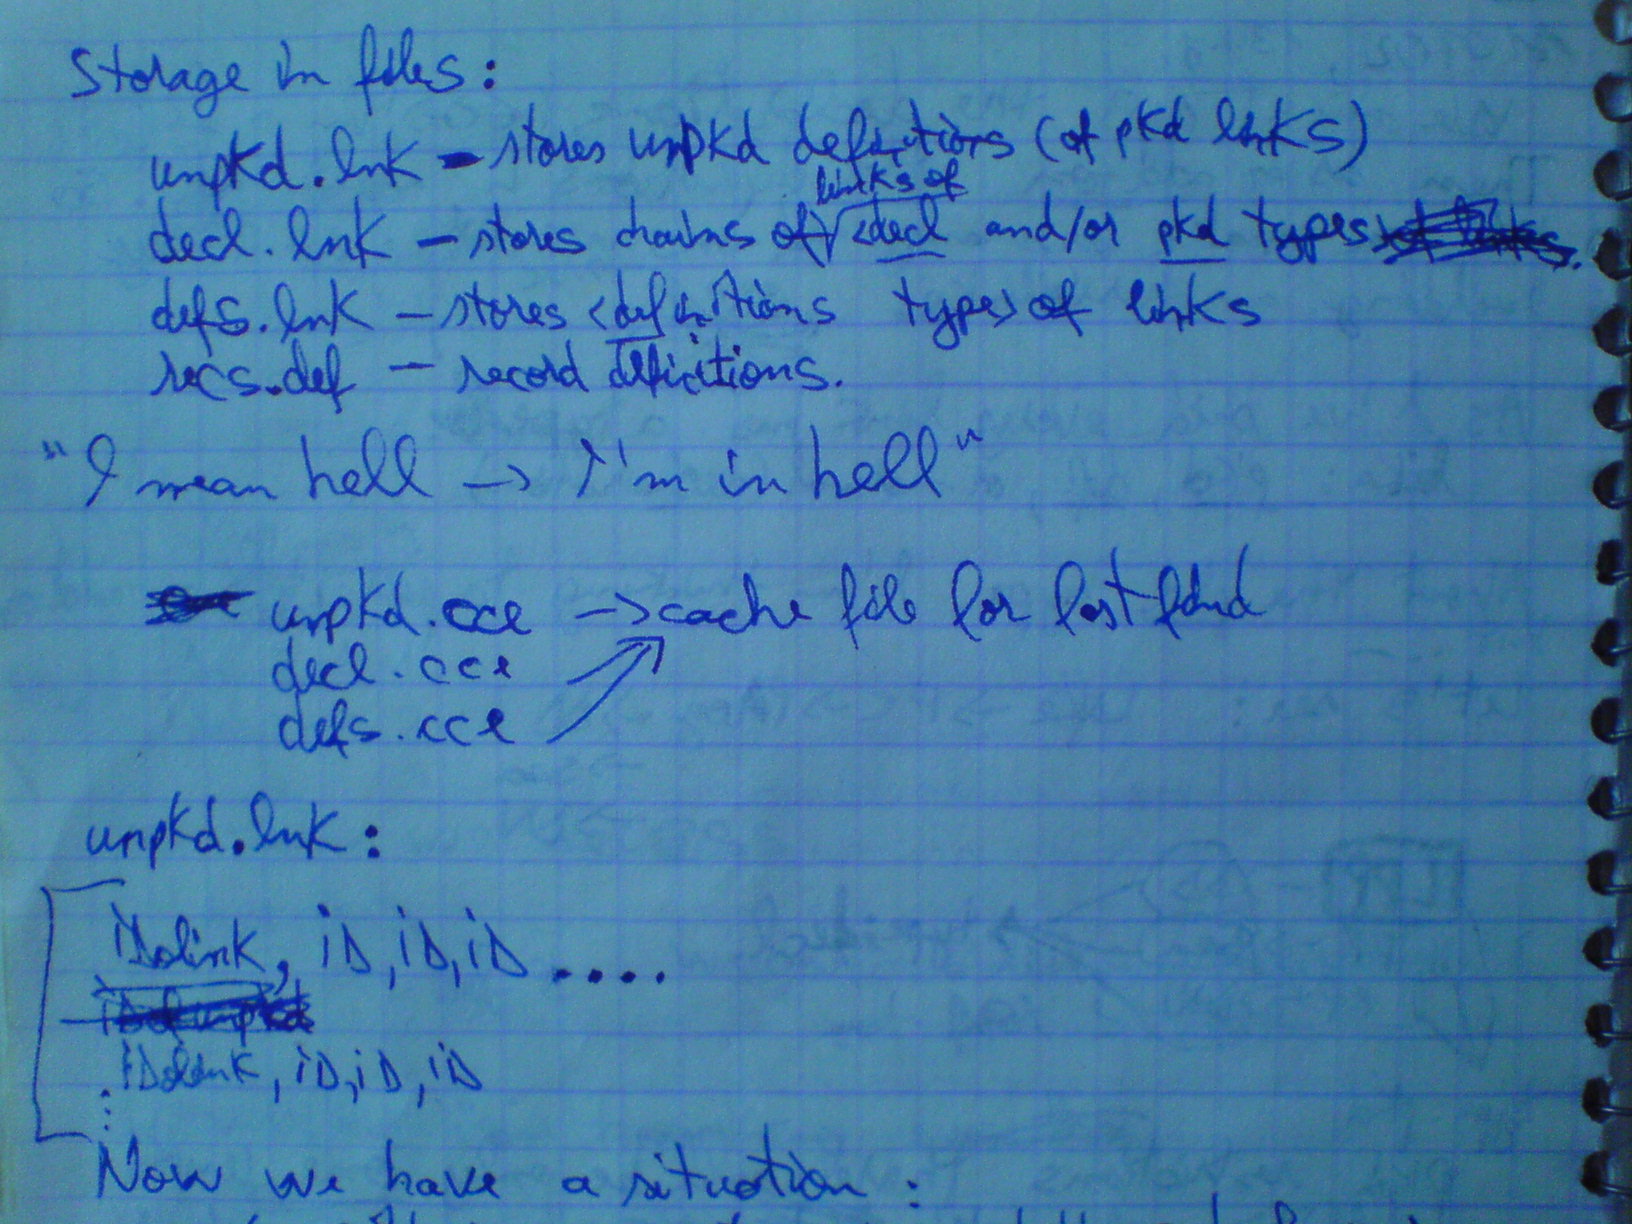 Storage in files:
unpkd.lnk - stores unpkd definitions (of pkd links)
links of
decl.lnk - stores chains of <decl and/or pkd types
defs.lnk - stores <definitions type> of links
recs.def - record definitions.
"I mean hell -> I'm in hell"
unpkd.cce -> cache file for last found
decl.cce
defs.cce
unpkd.lnk:
iDolink, iD, iD, iD ....
iDolink, iD, iD, iD
Now we have a situation: